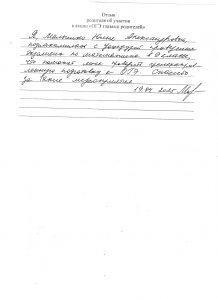 Отзыв
родителя об участии
в акции «ОГЭ глазами родителей»
Я, Юлия Александровна
познакомилась с процедурой проведения
экзамена по математике в 9 классе,
что поможет мне
подготовку к ОГЭ. Спасибо
за мероприятие
19.04.2025